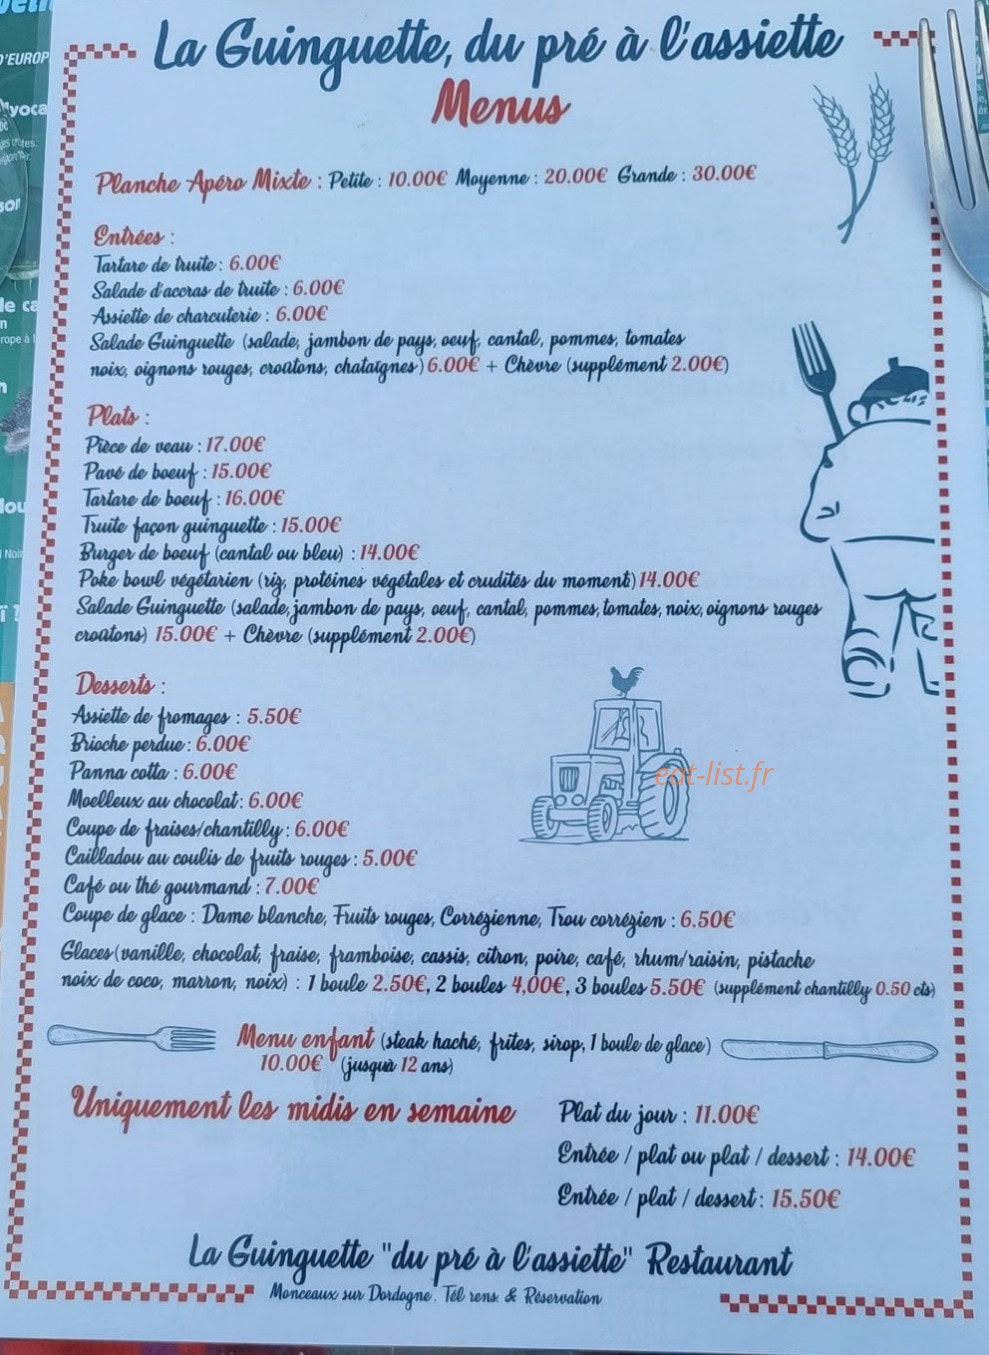 La Guinguette, du pré à l'assiette
Menus
Planche Apéro Mixte : Petite : 10.00€ Moyenne : 20.00€ Grande : 30.00€
Entrées :
Tartare de truite : 6.00€
Salade d'accras de truite : 6.00€
Assiette de charcuterie : 6.00€
Salade Guinguette (salade, jambon de pays, oeuf, cantal, pommes, tomates
noix, oignons rouges, croûtons, chataîgnes) 6.00€ + Chèvre (supplément 2.00€)
Plats :
Pièce de veau : 17.00€
Pavé de boeuf : 15.00€
Tartare de boeuf : 16.00€
Truite façon guinguette : 15.00€
Burger de boeuf (cantal ou bleu) : 14.00€
Poke bowl végétarien (riz, protéines végétales et crudités du moment) 14.00€
Salade Guinguette (salade, jambon de pays, oeuf, cantal, pommes, tomates, noix, oignons rouges
croûtons) 15.00€ + Chèvre (supplément 2.00€)
Desserts :
Assiette de fromages : 5.50€
Brioche perdue : 6.00€
Panna cotta : 6.00€
Moelleux au chocolat : 6.00€
eat-list.fr
Coupe de fraises/chantilly : 6.00€
Cailladou au coulis de fruits rouges : 5.00€
Café ou thé gourmand : 7.00€
Coupe de glace : Dame blanche, Fruits rouges, Corrézienne, Trou corrézien : 6.50€
Glaces (vanille, chocolat, fraise, framboise, cassis, citron, poire, café, rhum/raisin, pistache
noix de coco, marron, noix) : 1 boule 2.50€, 2 boules 4,00€, 3 boules 5.50€ (supplément chantilly 0.50 cts)
Menu enfant (steak haché, frites, sirop, 1 boule de glace)
10.00€ (jusquà 12 ans)
Uniquement les midis en semaine
Plat du jour : 11.00€
Entrée / plat ou plat / dessert : 14.00€
Entrée / plat / dessert : 15.50€
La Guinguette "du pré à l'assiette" Restaurant
Monceaux sur Dordogne. Tél rens. & Réservation